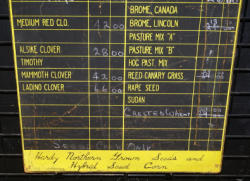 BROME, CANADA
MEDIUM RED CLO. 42 00 BROME, LINCOLN
PASTURE MIX "A"
ALSIKE CLOVER 28 00 PASTURE MIX "B"
TIMOTHY HOG PAST. MIX
MAMMOTH CLOVER 42 00 REED CANARY GRASS
LADINO CLOVER 66 00 RAPE SEED
SUDAN
CRESTED WHEAT
Only
Hardy Northern Grown Seeds and
Hybrid Seed Corn